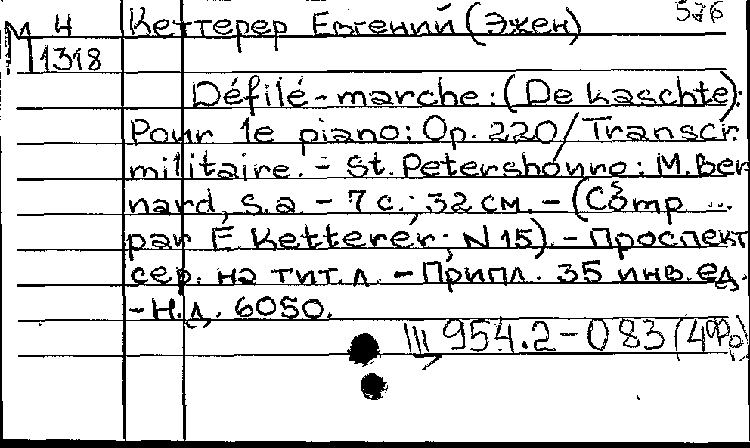 М Ч Кеттерер Евгений (Эжен) 526
1318
Défilé-marche: (De kaschte):
Pour le piano: Op. 220/Transcr.
militaire. - St. Petersbourg: M. Ber
nard, s.a. - 7 с.; 32 см. - (Comp ...
par E Ketterer; N 15). - Проспект
сер. на тит. л. - Припл. 35 инв. ед.
- Н.д. 6050.
Ш 954.2-083 (4Фр)